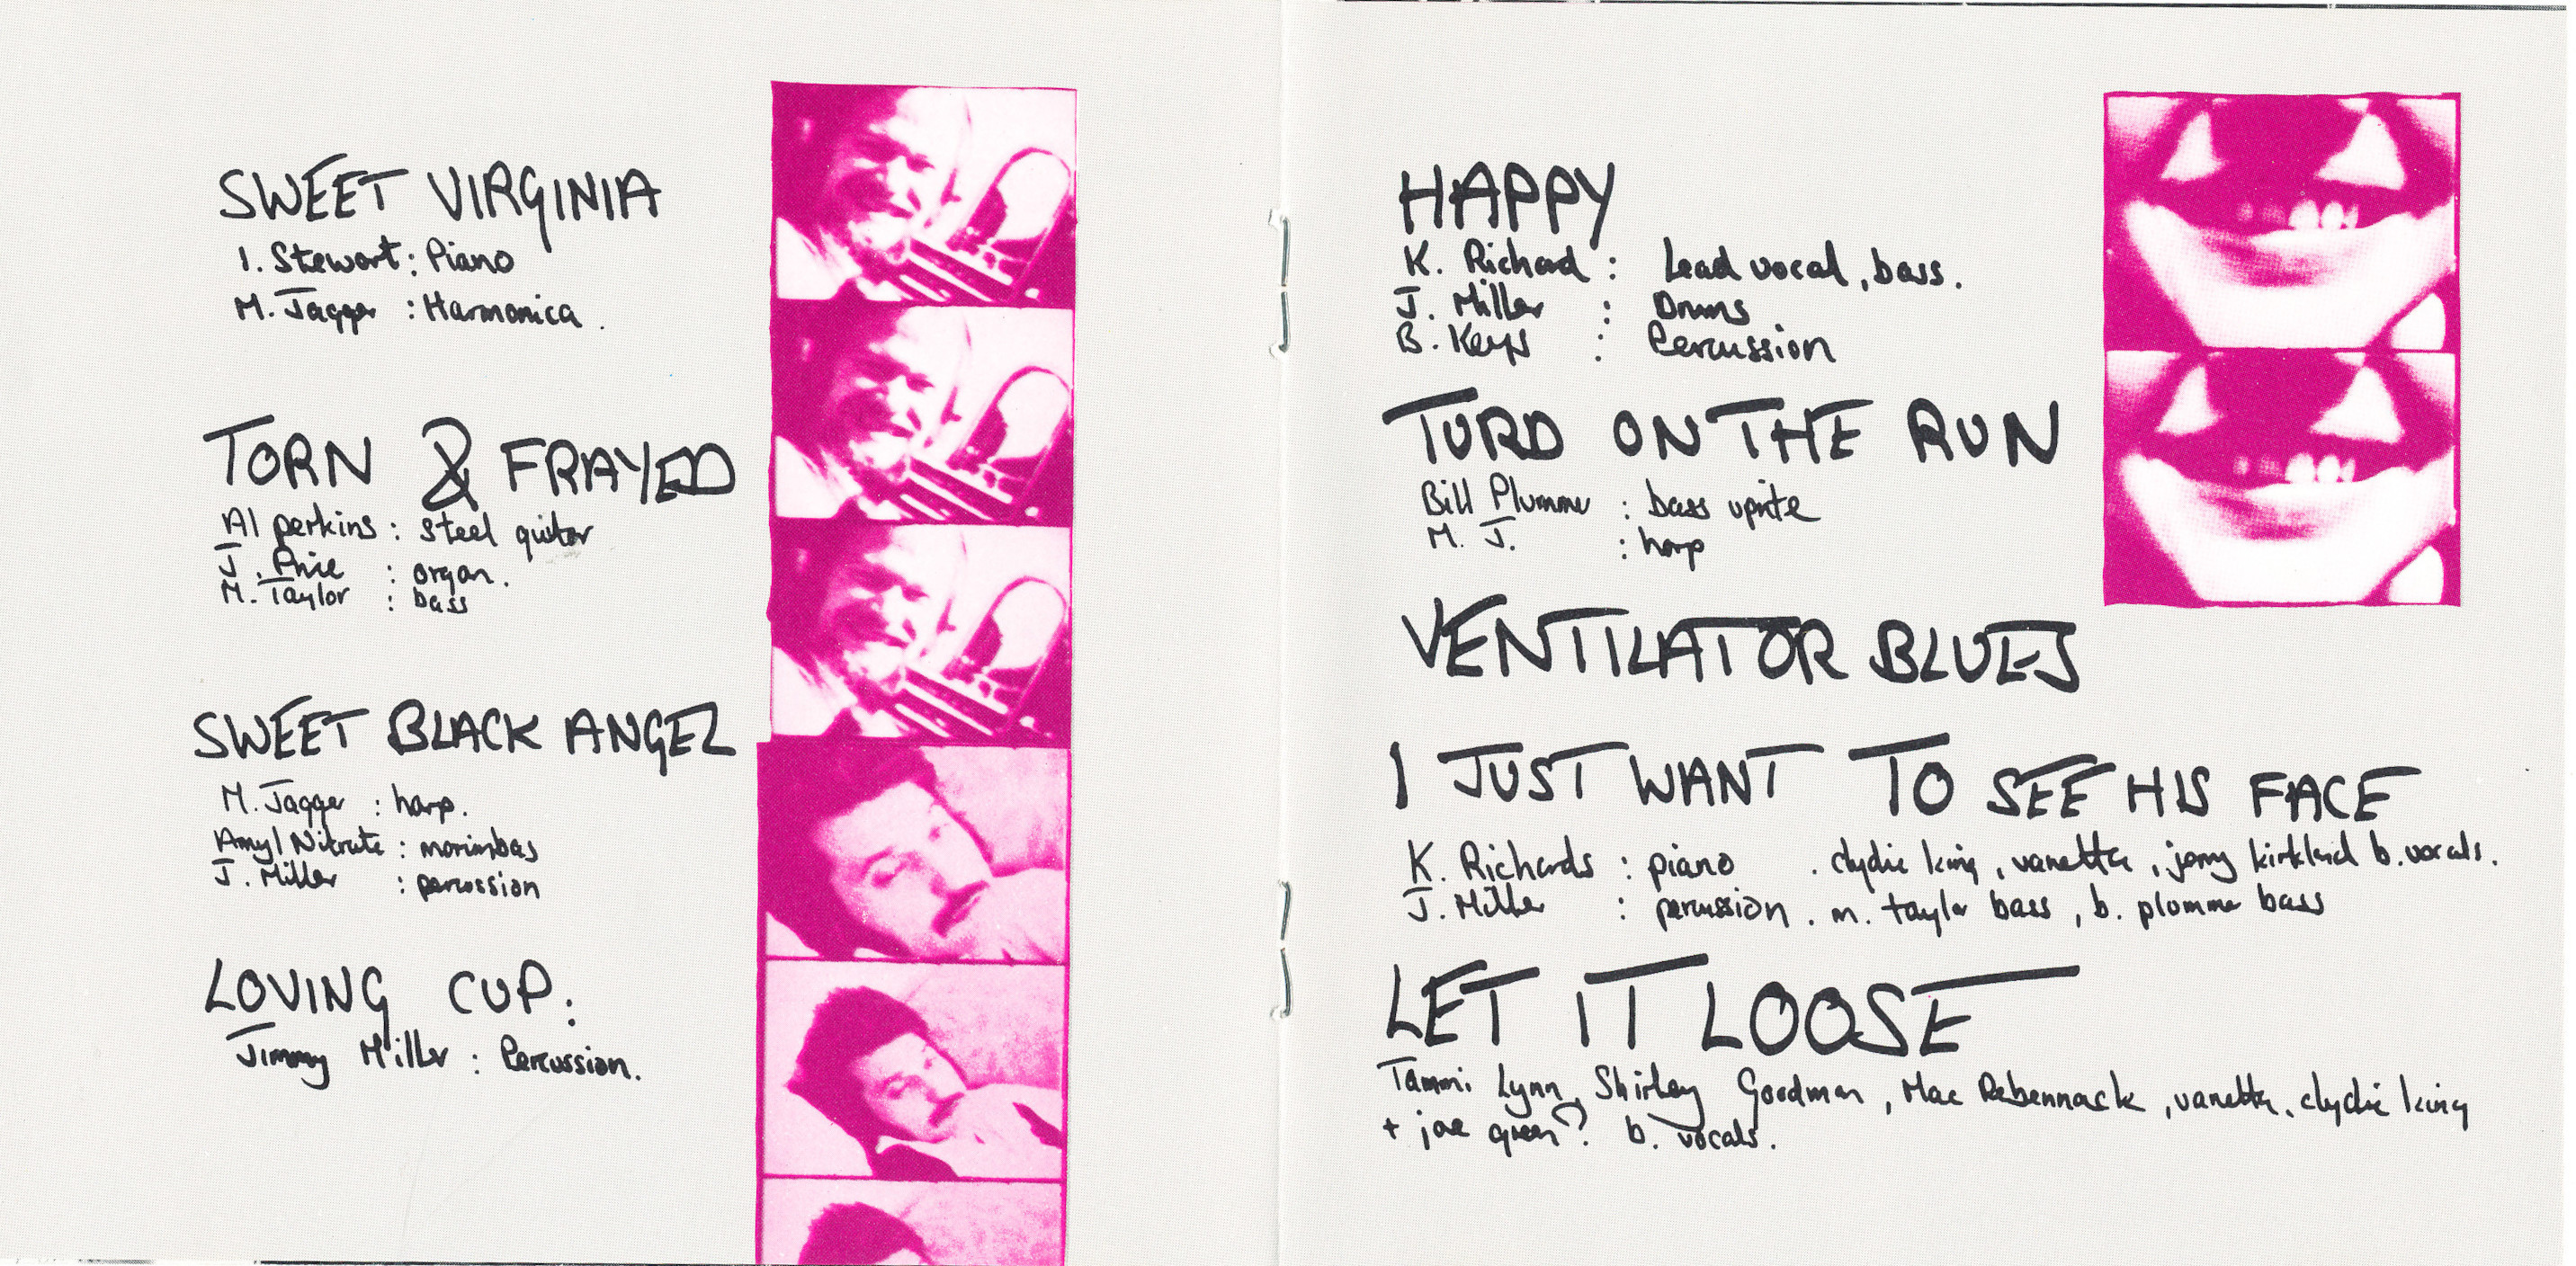 SWEET VIRGINIA
I. Stewart : Piano
M. Jagger : Harmonica .
TORN & FRAYED
Al perkins : steel guitar
J. Price : organ.
M. Taylor : bass
SWEET BLACK ANGEL
M. Jagger : harp.
Amyl Nitrate : marimbas
J. Miller : percussion
LOVING CUP :
Jimmy Miller : Percussion.
HAPPY
K. Richard : Lead vocal, bass.
J. Miller : Drums
B. Keys : Percussion
TURD ON THE RUN
Bill Plummer : bass uprite
M. J. : harp
VENTILATOR BLUES
I JUST WANT TO SEE HIS FACE
K. Richards : piano . clydie king, vanetta, jerry kirkland b. vocals.
J. Miller : percussion . m. taylor bass, b. plummer bass
LET IT LOOSE
Tammi Lynn, Shirley Goodman, Mac Rebennack, vanetta, clydie king
+ joe green? b. vocals.